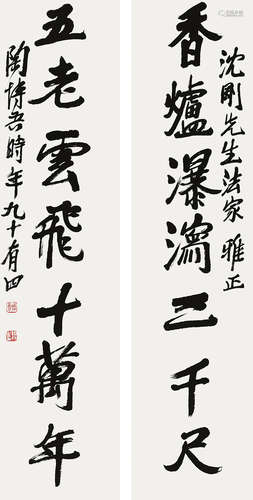 沈剛先生法家 雅正
香爐瀑瀉三千尺
五老雲飛十萬年
陶博吾時年九十有四